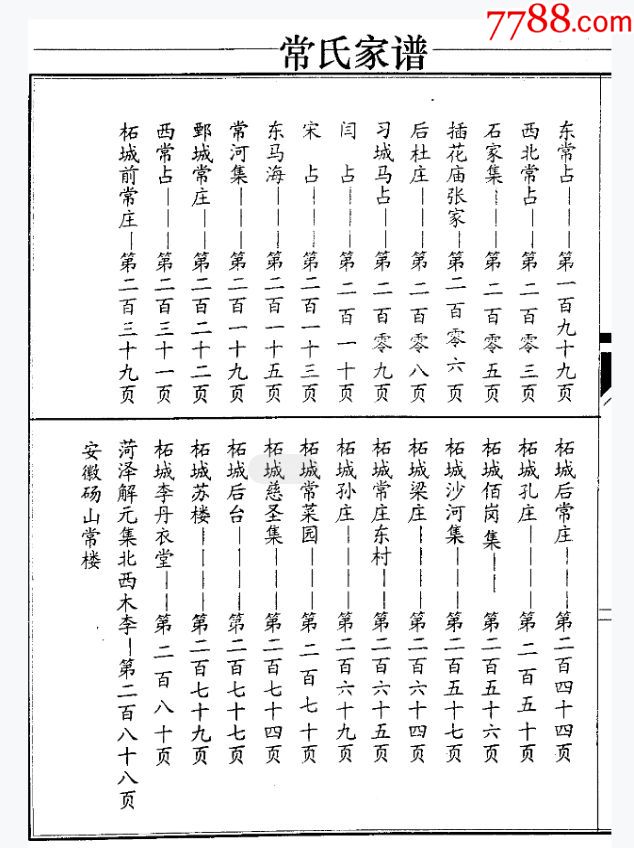 7788.com
常氏家谱
东常占———第一百九十九页
西北常占——第二百零三页
石家集———第二百零五页
插花庙张家—第二百零六页
后杜庄———第二百零八页
习城马占——第二百零九页
闫占———第二百一十页
宋占———第二百一十三页
东马海———第二百一十五页
常河集———第二百一十九页
鄄城常庄——第二百二十二页
西常占———第二百三十一页
柘城前常庄—第二百三十九页
柘城后常庄———第二百四十四页
柘城孔庄————第二百五十页
柘城佰岗集——第二百五十六页
柘城沙河集———第二百五十七页
柘城梁庄————第二百六十四页
柘城常庄东村——第二百六十五页
柘城孙庄————第二百六十九页
柘城常菜园———第二百七十页
柘城慈圣集———第二百七十四页
柘城后台————第二百七十七页
柘城苏楼————第二百七十九页
柘城李丹衣堂——第二百八十页
菏泽解元集北西木李—第二百八十八页
安徽砀山常楼